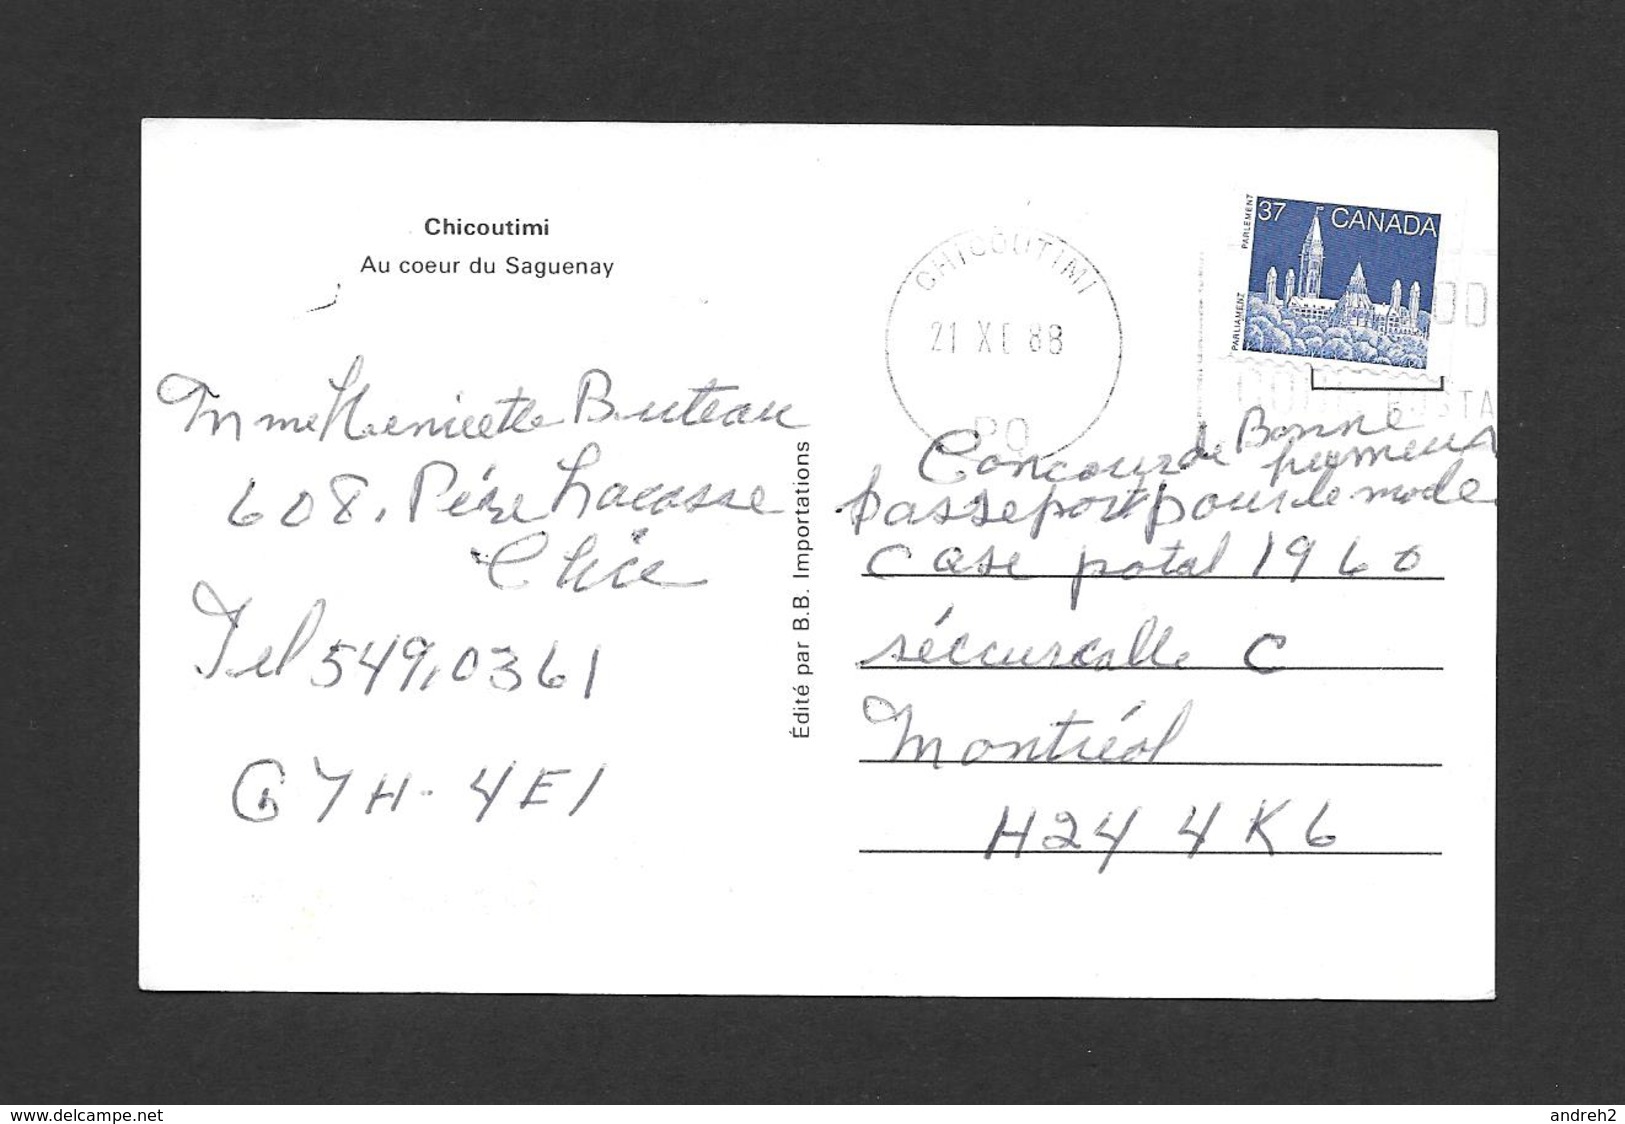 Chicoutimi
Au coeur du Saguenay
Mme Henriette Buteau
608, Père Lacasse
Chic
Tel 549,0361
G7H-4E1
Édité par B.B. Importations
CHICOUTIMI
21 XI 88
PQ
37 CANADA
PARLEMENT
PARLIAMENT
CODE POSTA
Concour de Bonne
passeport pour le mode
Case potal 1960
séccurcalle C
Montréal
H24 4K6
www.delcampe.net
andreh2